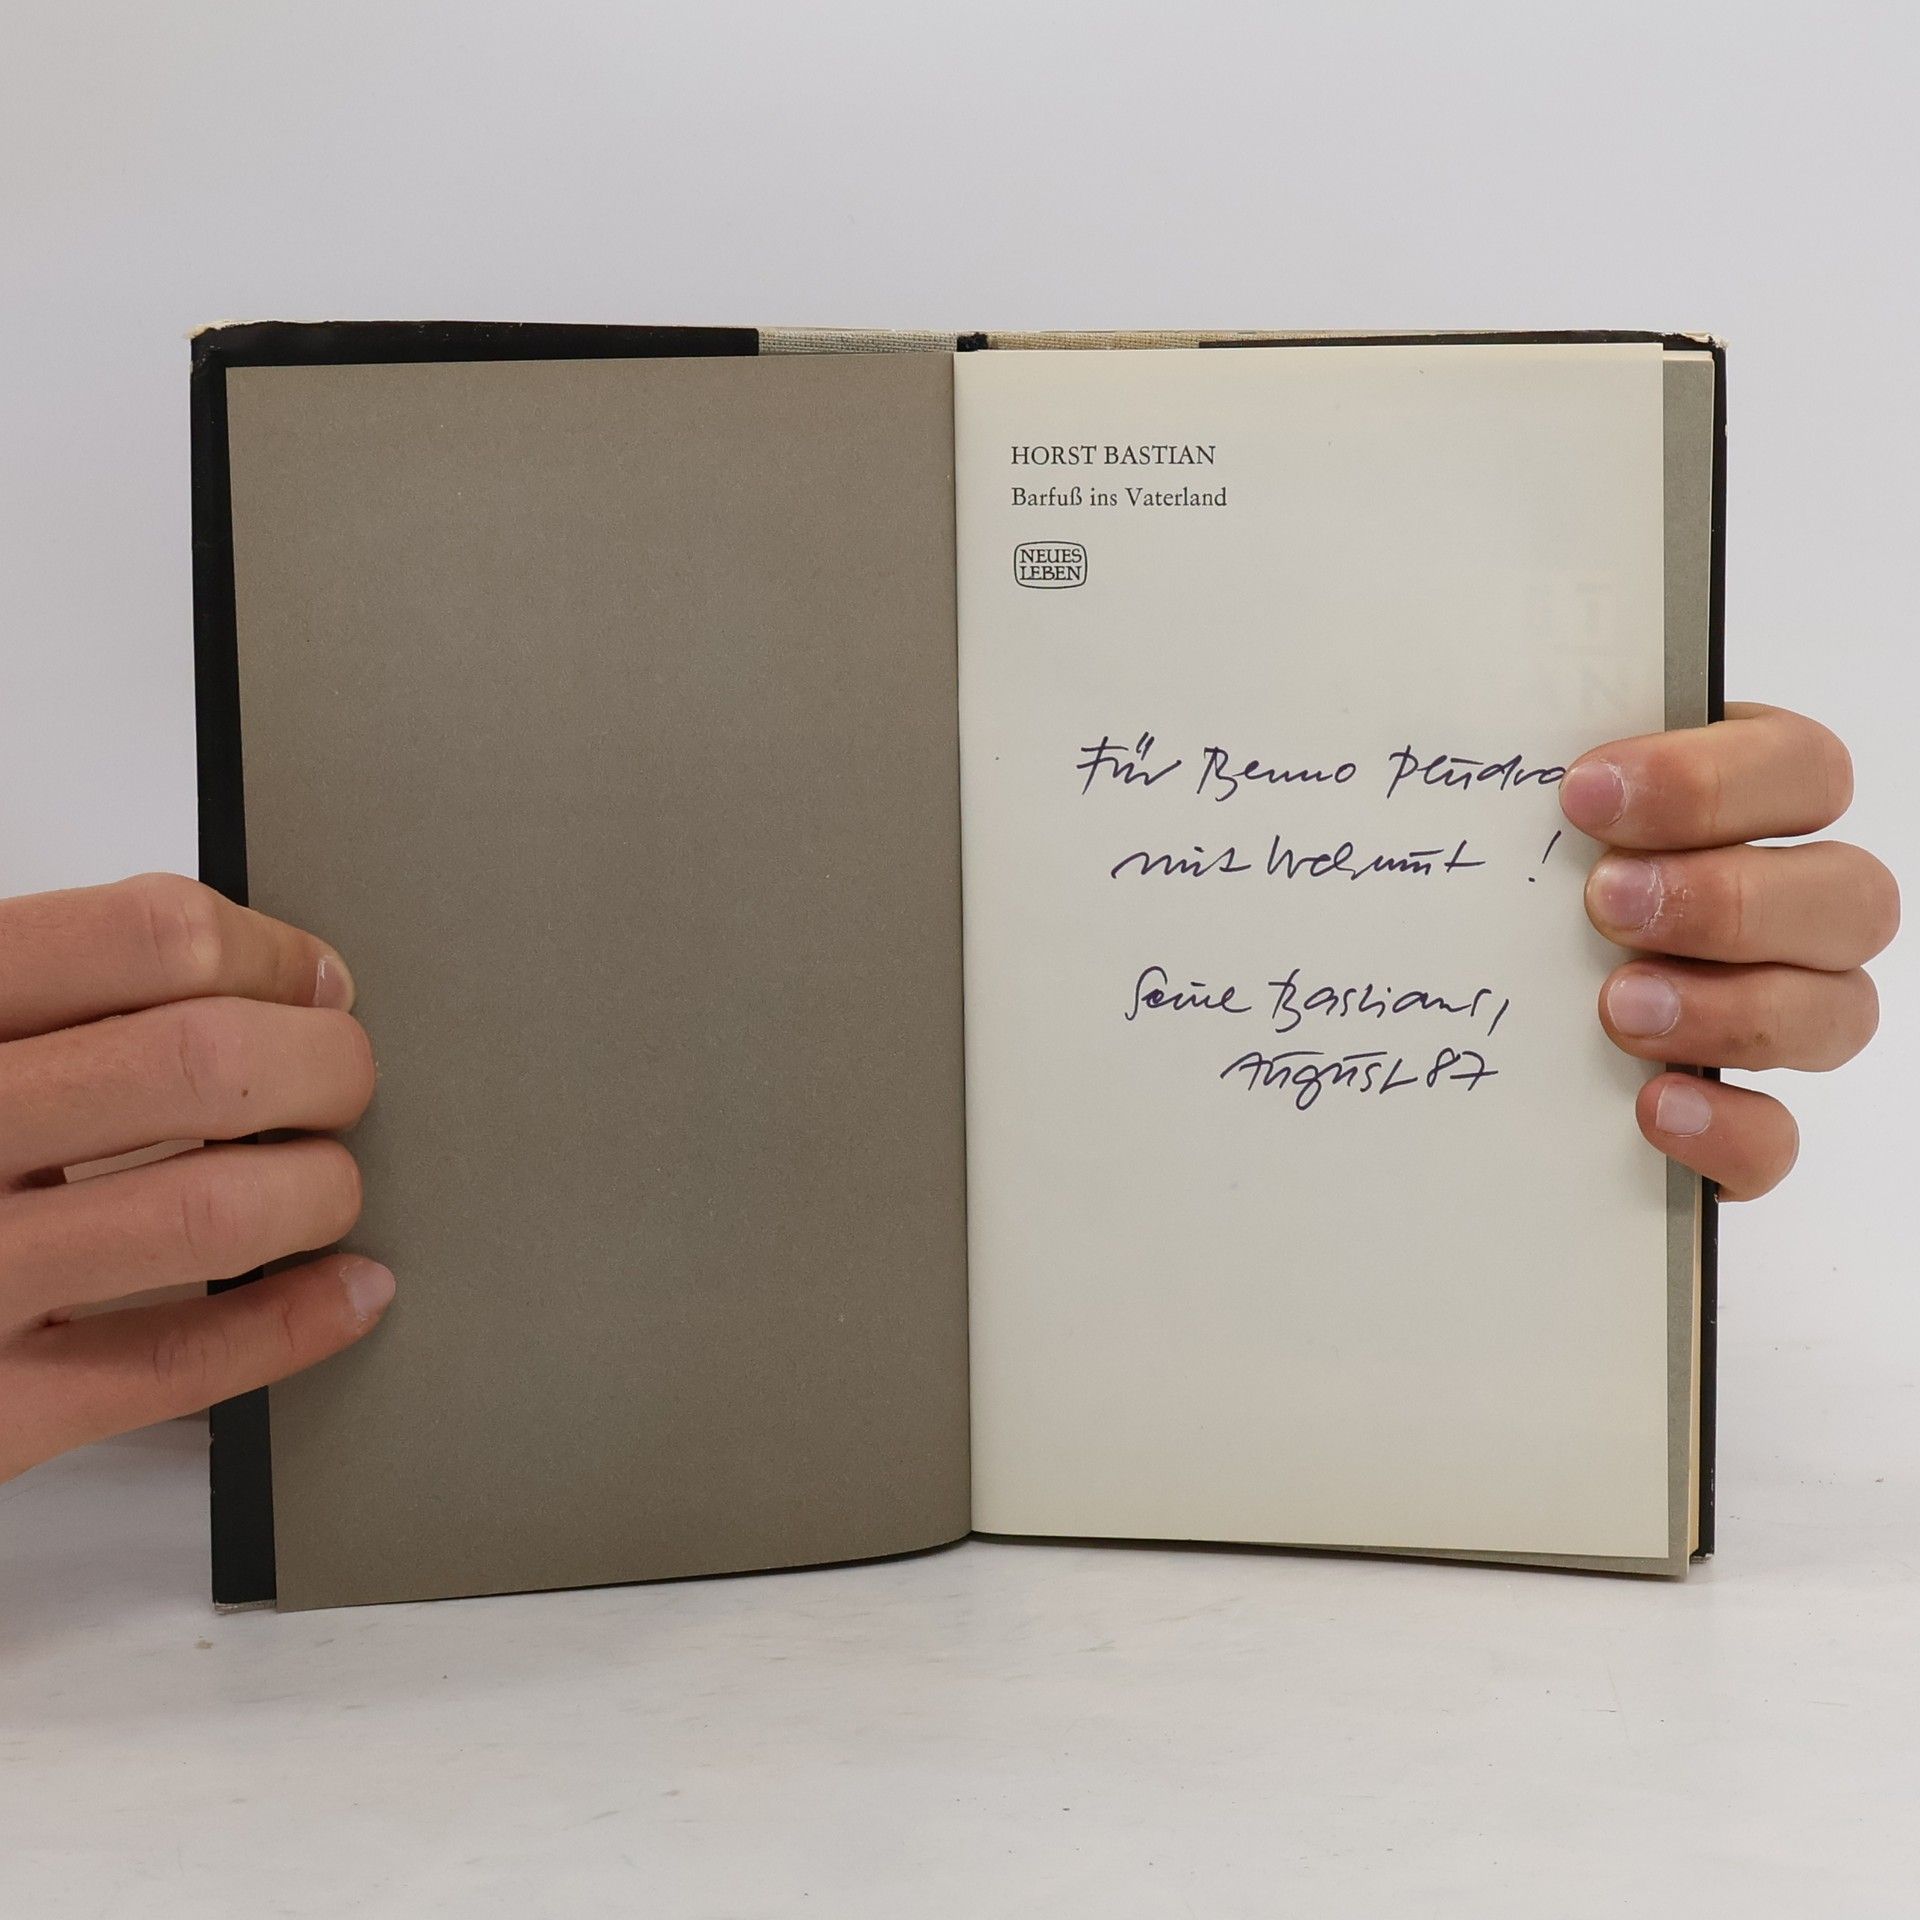 HORST BASTIAN
Barfuß ins Vaterland
NEUES
LEBEN
Für Benno Pludra
mit Wehmut !
Seine Bastians,
August 87